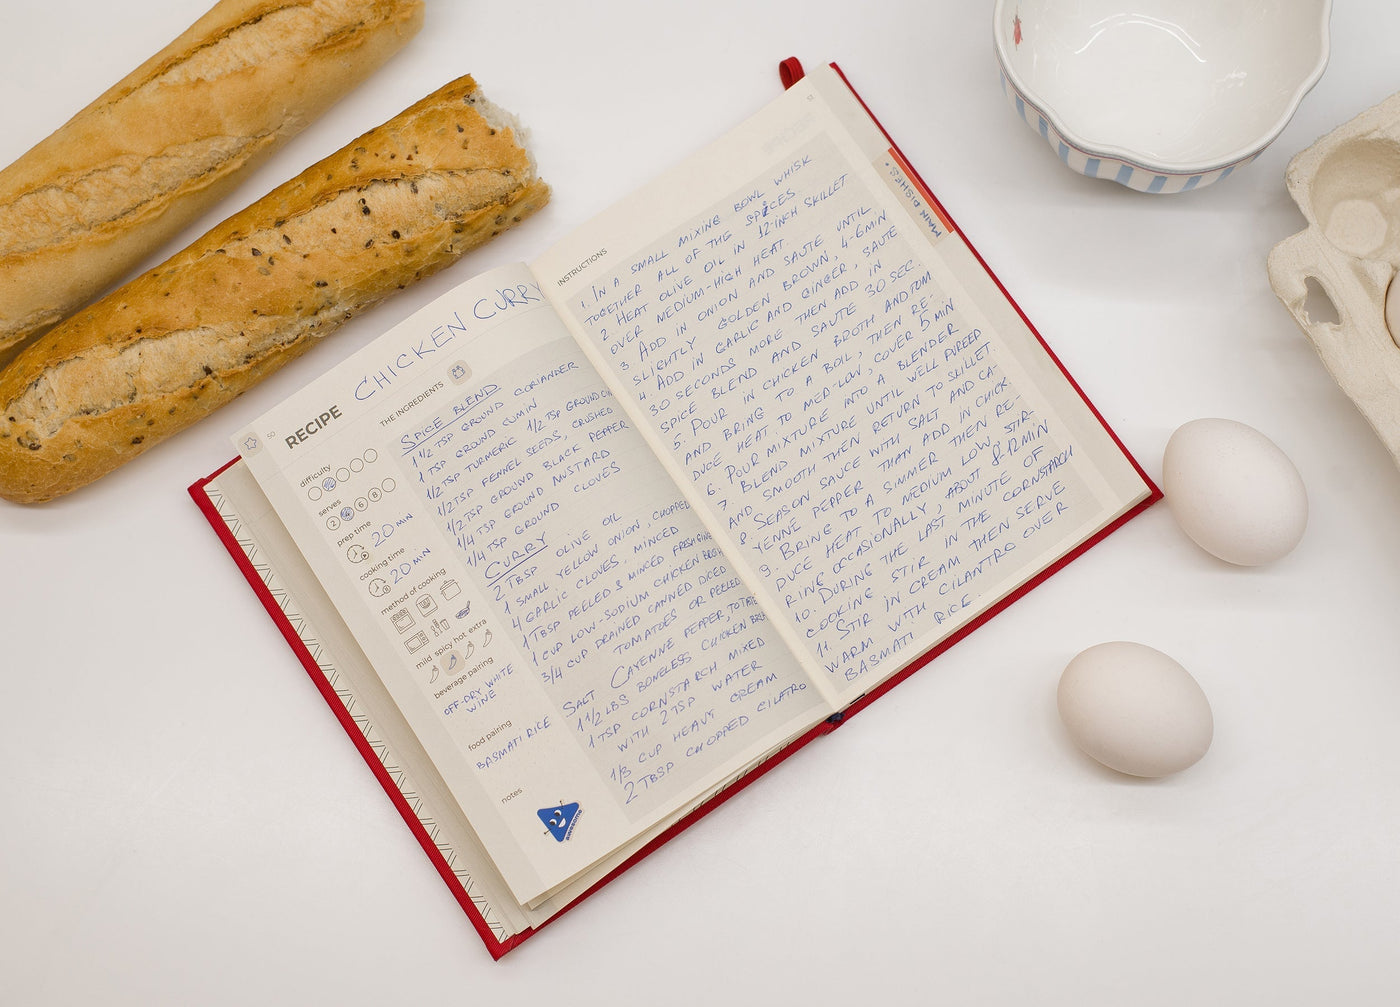 50
RECIPE CHICKEN CURRY
THE INGREDIENTS
difficulty
serves
2 4 6 8
prep time
20 MIN
cooking time
20 MIN
method of cooking
mild spicy hot extra
beverage pairing
OFF-DRY WHITE
WINE
food pairing
BASMATI RICE
notes
awesome
SPICE BLEND
1 1/2 TSP GROUND CORIANDER
1 TSP GROUND CUMIN
1/2 TSP TURMERIC 1/2 TSP GROUND
1/2 TSP FENNEL SEEDS, CRUSHED
1/2 TSP GROUND BLACK PEPPER
1/4 TSP GROUND MUSTARD
1/4 TSP GROUND CLOVES
CURRY
2 TBSP OLIVE OIL
1 SMALL YELLOW ONION, CHOPPED
4 GARLIC CLOVES, MINCED
1 TBSP PEELED & MINCED FRESH
1 CUP LOW-SODIUM CHICKEN BROTH
3/4 CUP DRAINED CANNED DICED
TOMATOES OR PEELED
SALT CAYENNE PEPPER, TO TASTE
1 1/2 LBS BONELESS CHICKEN
1 TSP CORNSTARCH MIXED
WITH 2 TSP WATER
1/3 CUP HEAVY CREAM
2 TBSP CHOPPED CILATRO
INSTRUCTIONS
1. IN A SMALL MIXING BOWL WHISK
TOGETHER ALL OF THE SPICES
2. HEAT OLIVE OIL IN 12-INCH SKILLET
OVER MEDIUM-HIGH HEAT.
3. ADD IN ONION AND SAUTE UNTIL
SLIGHTLY GOLDEN BROWN, 4-6 MIN
4. ADD IN GARLIC AND GINGER, SAUTE
30 SECONDS MORE THEN ADD IN
SPICE BLEND AND SAUTE 30 SEC.
5. POUR IN CHICKEN BROTH AND TOM
AND BRING TO A BOIL, THEN RE-
DUCE HEAT TO MED-LOW, COVER 5 MIN
6. POUR MIXTURE INTO A BLENDER
7. BLEND MIXTURE UNTIL WELL PUREED
AND SMOOTH THEN RETURN TO SKILLET.
8. SEASON SAUCE WITH SALT AND CA-
YENNE PEPPER THAN ADD IN CHICK.
9. BRING TO A SIMMER THEN RE-
DUCE HEAT TO MEDIUM LOW, STIR-
RING OCCASIONALLY, ABOUT 8-12 MIN
10. DURING THE LAST MINUTE OF
COOKING STIR IN THE CORNSTARCH
11. STIR IN CREAM THEN SERVE
WARM WITH CILANTRO OVER
BASMATI RICE.
MAIN DISHES.